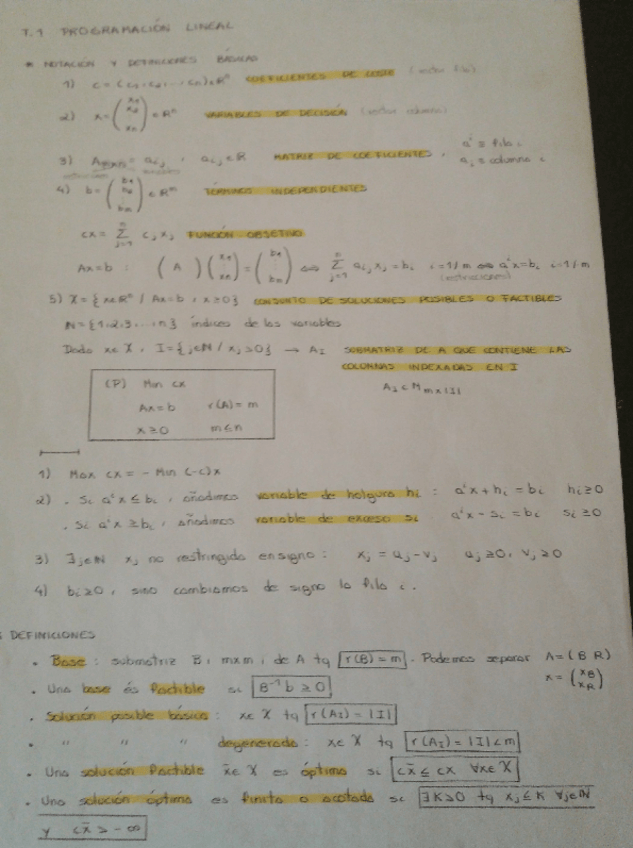 T.1 PROGRAMACIÓN LINEAL
* NOTACIÓN Y DEFINICIONES BÁSICAS
1) c = (c₁, c₂, ..., cₙ) ∈ ℝⁿ COEFICIENTES DE COSTE (vector fila)
2) x = (x₁ x₂ ⋮ xₙ) ∈ ℝⁿ VARIABLES DE DECISIÓN (vector columna)
3) Aₘₓₙ = aᵢⱼ , aᵢⱼ ∈ ℝ MATRIZ DE COEFICIENTES , aⁱ ≡ fila i
aᵢ ≡ columna i
4) b = (b₁ b₂ ⋮ bₘ) ∈ ℝᵐ TÉRMINOS INDEPENDIENTES
cx = Σⱼ₌₁ⁿ cⱼxⱼ FUNCIÓN OBJETIVO
Ax = b : (A)(x₁ ⋮ xₙ) = (b₁ ⋮ bₘ) ⇔ Σⱼ₌₁ⁿ aᵢⱼxⱼ = bᵢ i=1/m ⇔ aⁱx = bᵢ i=1/m
(restricciones)
5) X = {x∈ℝⁿ / Ax = b , x ≥ 0} CONJUNTO DE SOLUCIONES POSIBLES O FACTIBLES
N = {1,2,3,...,n} índices de las variables
Dado x∈X , I = {j∈N / xⱼ > 0} → A_I SUBMATRIZ DE A QUE CONTIENE LAS
COLUMNAS INDEXADAS EN I
A_I ⊂ M m×|I|
(P) Min cx
Ax = b r(A) = m
x ≥ 0 m ≤ n
1) Max cx = - Min (-c)x
2) . Si aⁱx ≤ bᵢ , añadimos variable de holgura hᵢ : aⁱx + hᵢ = bᵢ hᵢ ≥ 0
. Si aⁱx ≥ bᵢ , añadimos variable de exceso sᵢ aⁱx - sᵢ = bᵢ sᵢ ≥ 0
3) ∃j∈N xⱼ no restringida en signo : xⱼ = uⱼ - vⱼ uⱼ ≥ 0, vⱼ ≥ 0
4) bᵢ ≥ 0 , sino cambiamos de signo la fila i .
DEFINICIONES
. Base : submatriz B , m×m , de A tq r(B) = m . Podemos separar A = (B R)
x = (x_B x_R)
. Una base es factible si B⁻¹b ≥ 0
. Solución posible básica : x∈X tq r(A_I) = |I|
. " " " degenerada : x∈X tq r(A_I) = |I| < m
. Una solución factible x̄∈X es óptima si cx̄ ≤ cx ∀x∈X
. Una solución óptima es finita o acotada si ∃K>0 tq xⱼ ≤ K ∀j∈N
y cx̄ > -∞